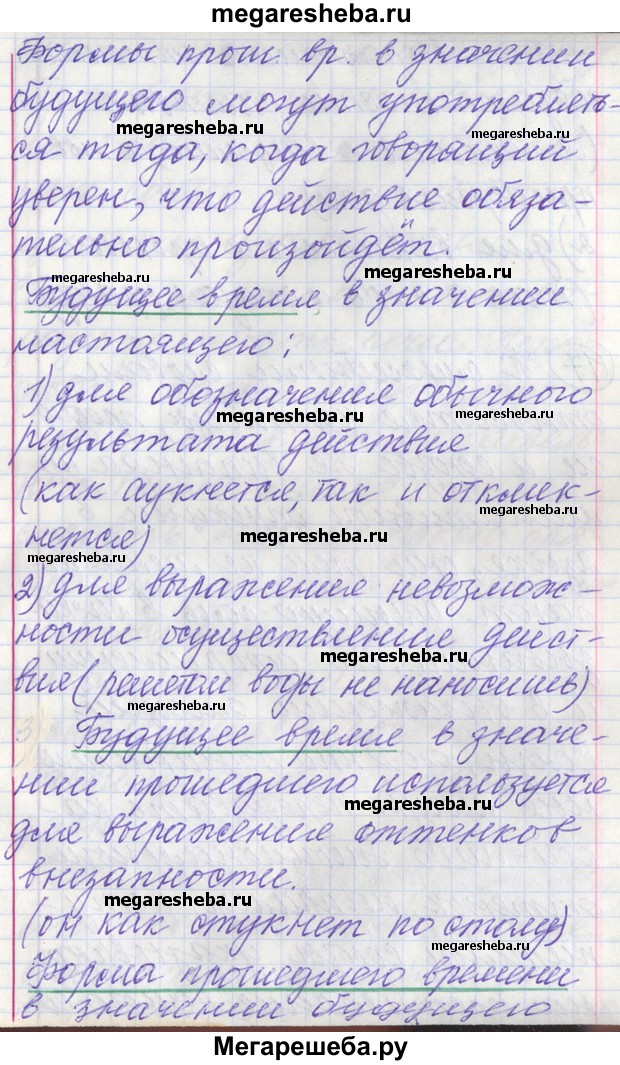 megaresheba.ru
Формы прош. вр. в значении
будущего могут употреблять-
megaresheba.ru
megaresheba.ru
ся тогда, когда говорящий
уверен, что действие обяза-
тельно произойдёт.
megaresheba.ru
megaresheba.ru
Будущее время в значении
настоящего:
1) для обозначения обычного
megaresheba.ru
результата действия
(как аукнется, так и отклик-
megaresheba.ru
megaresheba.ru
нется)
megaresheba.ru
2) для выражения невозмож-
ности осуществления дейст-
megaresheba.ru
вия (решетом воды не наносишь)
megaresheba.ru
Будущее время в значе-
нии прошедшего используется
megaresheba.ru
для выражения оттенков
внезапности.
megaresheba.ru
(он как стукнет по столу)
megaresheba.ru
Форма прошедшего времени
в значении будущего
Мегарешеба.ру